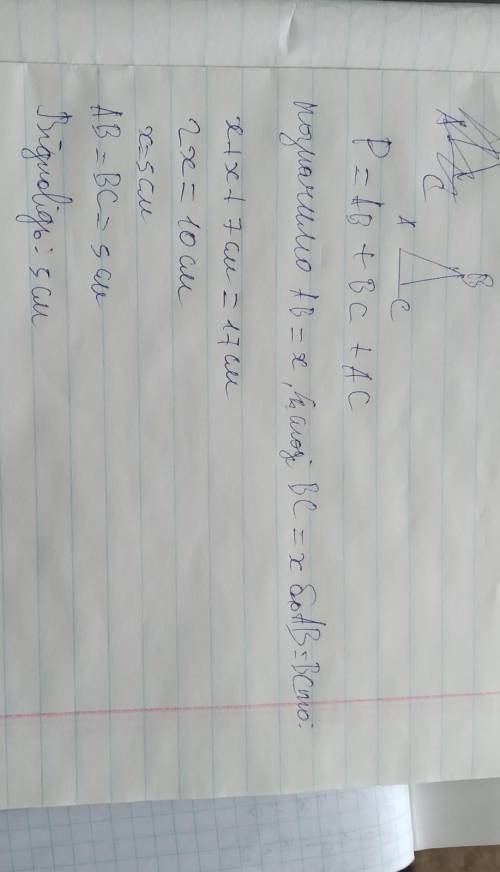 A
C
B
A
C
P = AB + BC + AC
позначимо AB = x, тоді BC = x бо AB = BC то:
x+x+7см = 17см
2x = 10см
x=5см
AB = BC = 5 см
Відповідь: 5 см